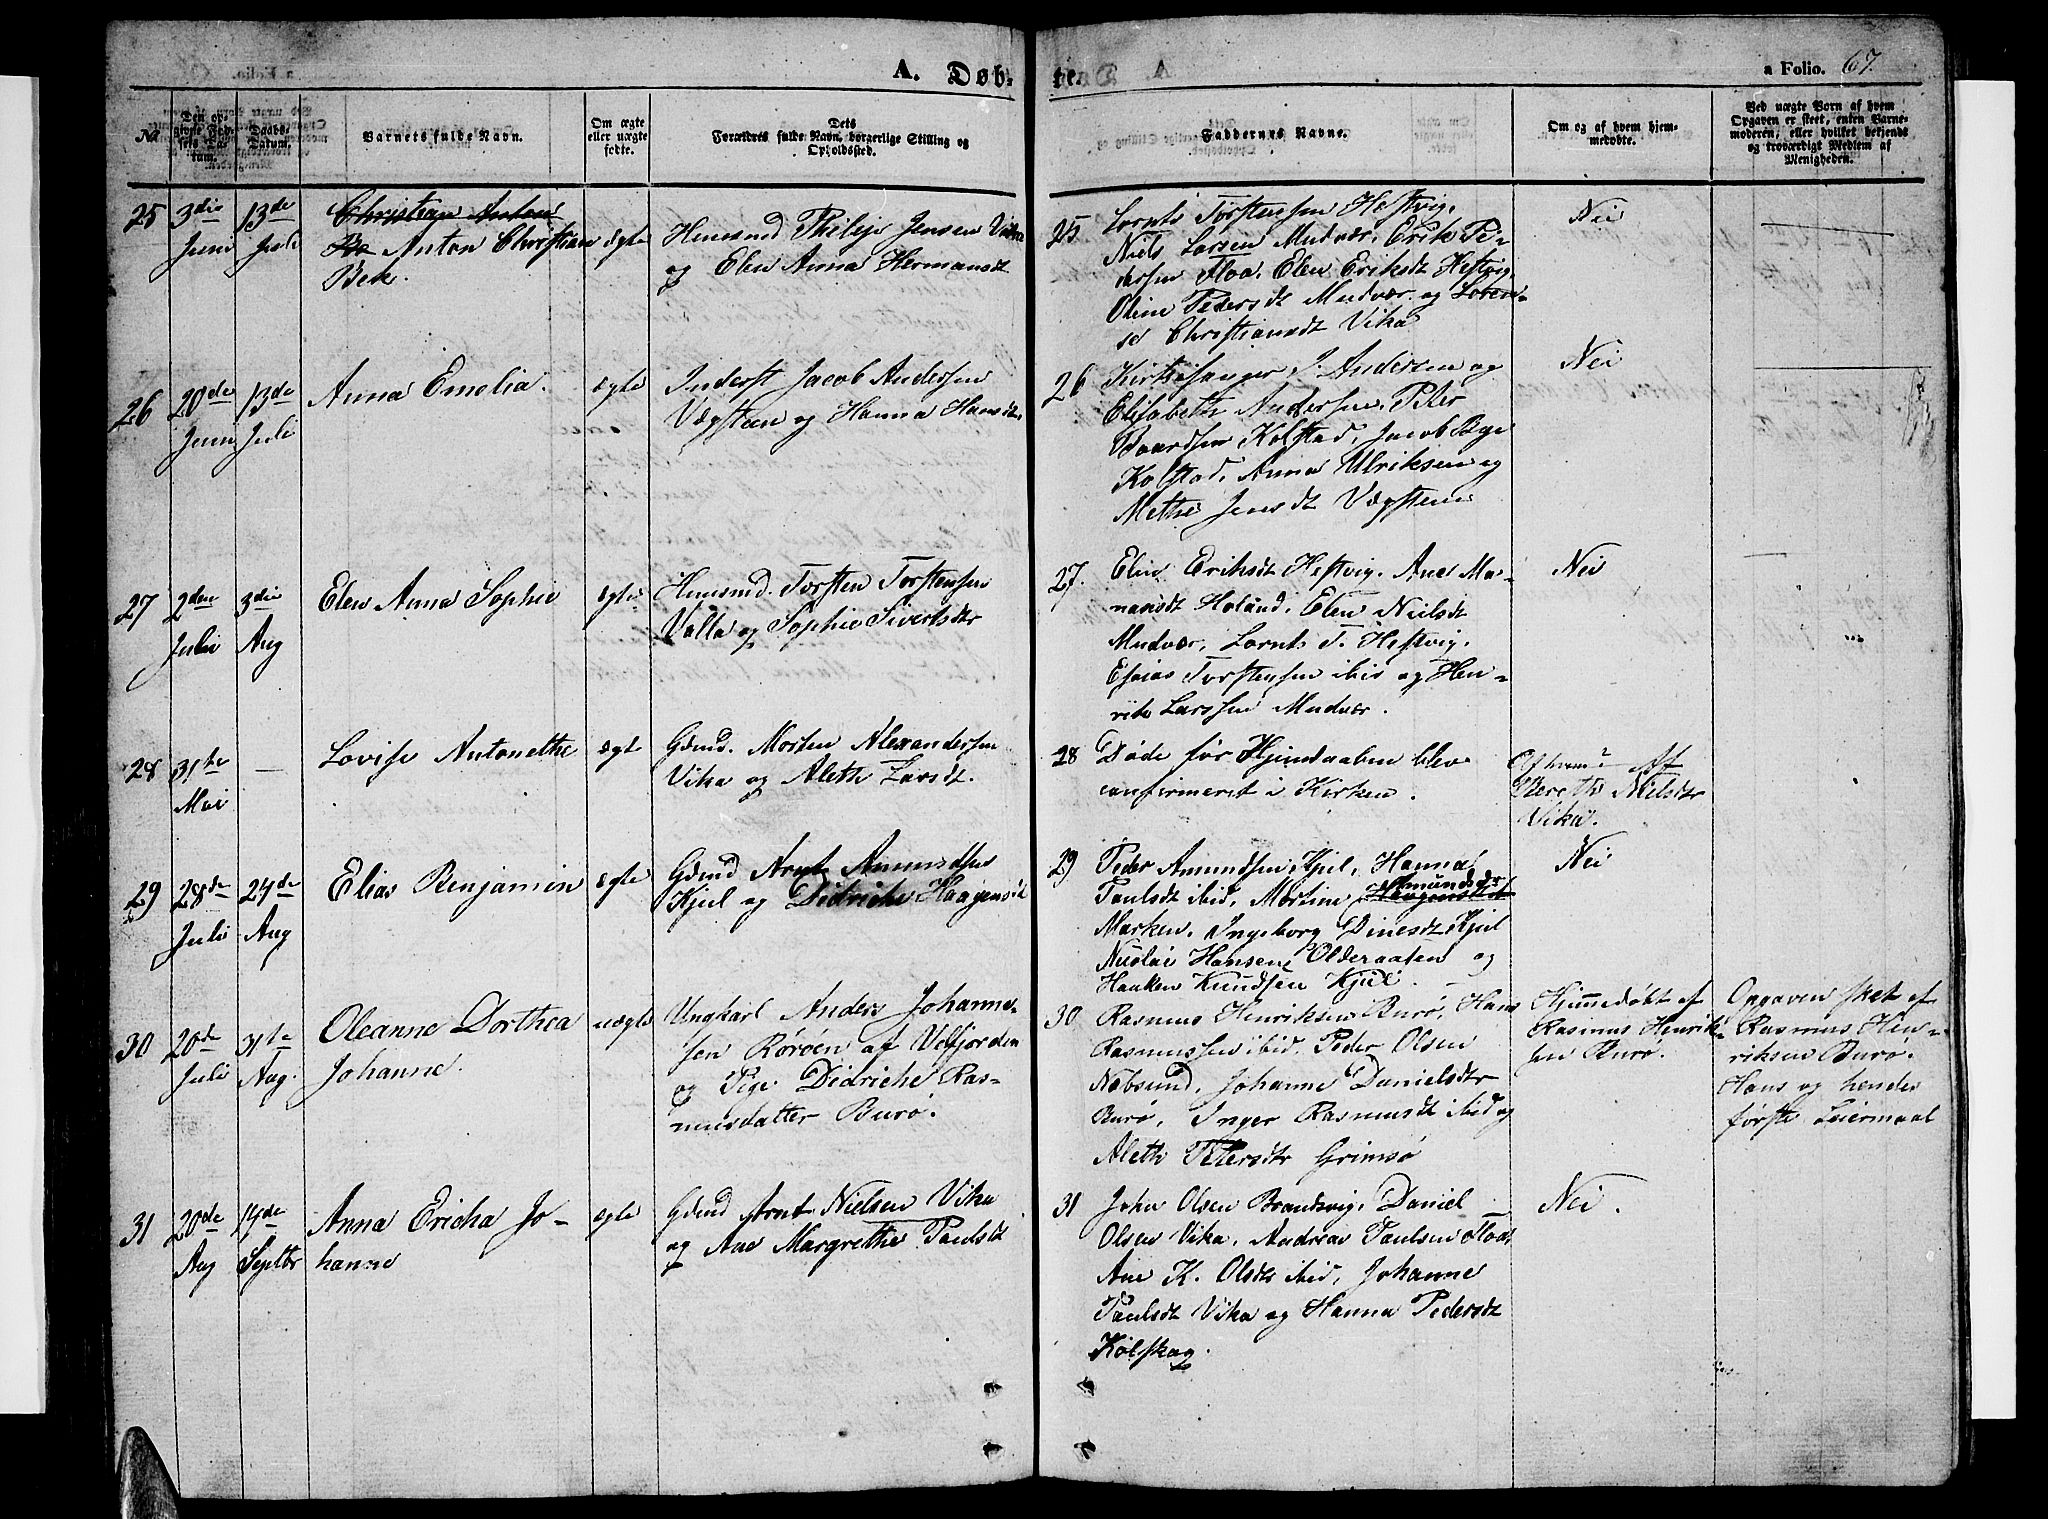 A. Døb-
te.
a Folio. 67.
No
Den op-
givne Fød-
sels Da-
tum.
Daabs-
Datum.
Barnets fulde Navn.
Om ægte
eller uægte
fødte.
Dets
Forældres fulde Navn, borgerlige Stilling og
Opholdssted.
Faddernes Navne.
Om og af hvem hjem-
medøbte.
Ved uægte Barn af hvem
Opgaven er skeet, enten Barne-
moderen, eller hvilket bekjendt
og troværdigt Medlem af
Menigheden.
25
3die
Juni
13de
Juli
Christian Anton
Be Anton Christian
Bek.
ægte
Huusmd Philip Jensen Vika
og Elen Anna Hermansdt
25
Lornts Torstensen Heftvig,
Niels Larsen Mudvær, Erik Pe-
dersen Floa, Elen Eriksdt Heftvig,
Oline Pedersdt Mudvær og Loren-
se Christiansdt Vika
Nei
26
20de
Juni
13de
Juli
Anna Emelia.
ægte
Inderst Jacob Andersen
Vægsteen og Hanna Hansdt.
26
Kirkesanger J. Andersen og
Elisabeth Andersen, Peter
Baardsen Kolstad, Jacob Byе
Kolstad, Anna Ulriksen og
Methe Jensdt Vægsteen
Nei
27
2den
Juli
3die
Aug
Elen Anna Sophie
ægte
Huusmd. Torsten Torstensen
Valla og Sophie Sivertsdtr
27.
Elen Eriksdt Heftvig. Ane Ma-
nasisdt Holand, Elen Nielsdt
Mudvær, Lornts T. Heftvig.
Esaias Torstensen ibid og Hen-
rik Larssen Mudvær.
Nei
28
31te
Mai
—
Lovise Antonethe
ægte
Gdmd. Morten Alexandersen
Vika og Aleth Larsdt.
28
Døde før Hjemdaaben blev
confirmeret i Kirken.
Af hvem? Af
Bereth Nielsdtr
Vika.
29
28de
Juli
24de
Aug
Elias Benjamin
ægte
Gdmd Arnt Amundsen
Kjul og Didriche Haagensdt
29
Peder Amundsen Kjul, Hanna
Paulsdt ibid, Martine Haagensdt Amundsdtr
Marken, Ingeborg Dinesdt Kjul
Nicolai Hansen Olderaasen og
Haaken Knudsen Kjul.
Nei
30
20de
Juli
31te
Aug.
Oleanne Dorthea
Johanne.
uægte
Ungkarl Anders Johanne-
sen Rørøen af Vefjorden
og Pige Didriche Ras-
musdatter Burø.
30
Rasmus Henriksen Burø, Hans
Rasmussen ibid. Peder Olsen
Næbsund, Johanne Danielsdtr
Burø, Inger Rasmusdt ibid og
Aleth Petersdtr Grimsø
Hjemmedøbt af
Rasmus Henrik-
sen Burø.
Opgaven sket af
Rasmus Hen-
riksen Burø.
Hans og hendes
første Leiermaal
31
20de
Aug
14de
Septbr
Anna Ericha Jo-
hanne
ægte
Gdmd Arnt Nielsen Vika
og Ane Margrethe Paulsdt
31
John Olsen Brandsvig, Daniel
Olsen Vika, Andreas Paulsen Floa
Ane K. Olsdtr ibid, Johanne
Paulsdt Vika og Hanna Pedersdt
Kolskag.
Nei.